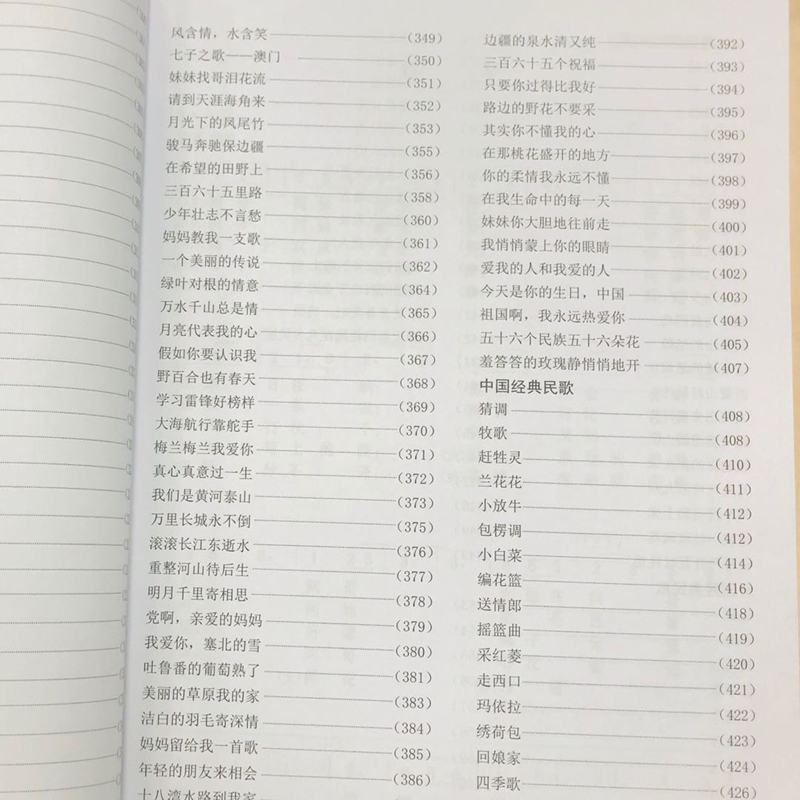 风含情，水含笑 (349)
七子之歌——澳门 (350)
妹妹找哥泪花流 (351)
请到天涯海角来 (352)
月光下的凤尾竹 (353)
骏马奔驰保边疆 (355)
在希望的田野上 (356)
三百六十五里路 (358)
少年壮志不言愁 (360)
妈妈教我一支歌 (361)
一个美丽的传说 (362)
绿叶对根的情意 (364)
万水千山总是情 (365)
月亮代表我的心 (366)
假如你要认识我 (367)
野百合也有春天 (368)
学习雷锋好榜样 (369)
大海航行靠舵手 (370)
梅兰梅兰我爱你 (371)
真心真意过一生 (372)
我们是黄河泰山 (373)
万里长城永不倒 (375)
滚滚长江东逝水 (376)
重整河山待后生 (377)
明月千里寄相思 (378)
党啊，亲爱的妈妈 (379)
我爱你，塞北的雪 (380)
吐鲁番的葡萄熟了 (381)
美丽的草原我的家 (383)
洁白的羽毛寄深情 (384)
妈妈留给我一首歌 (385)
年轻的朋友来相会 (386)
十八湾水路到我家
边疆的泉水清又纯 (392)
三百六十五个祝福 (393)
只要你过得比我好 (394)
路边的野花不要采 (395)
其实你不懂我的心 (396)
在那桃花盛开的地方 (397)
你的柔情我永远不懂 (398)
在我生命中的每一天 (399)
妹妹你大胆地往前走 (400)
我悄悄蒙上你的眼睛 (401)
爱我的人和我爱的人 (402)
今天是你的生日，中国 (403)
祖国啊，我永远热爱你 (404)
五十六个民族五十六朵花 (405)
羞答答的玫瑰静悄悄地开 (407)
中国经典民歌
猜调 (408)
牧歌 (408)
赶牲灵 (410)
兰花花 (411)
小放牛 (412)
包楞调 (412)
小白菜 (414)
编花篮 (416)
送情郎 (418)
摇篮曲 (419)
采红菱 (420)
走西口 (421)
玛依拉 (422)
绣荷包 (423)
回娘家 (424)
四季歌 (426)